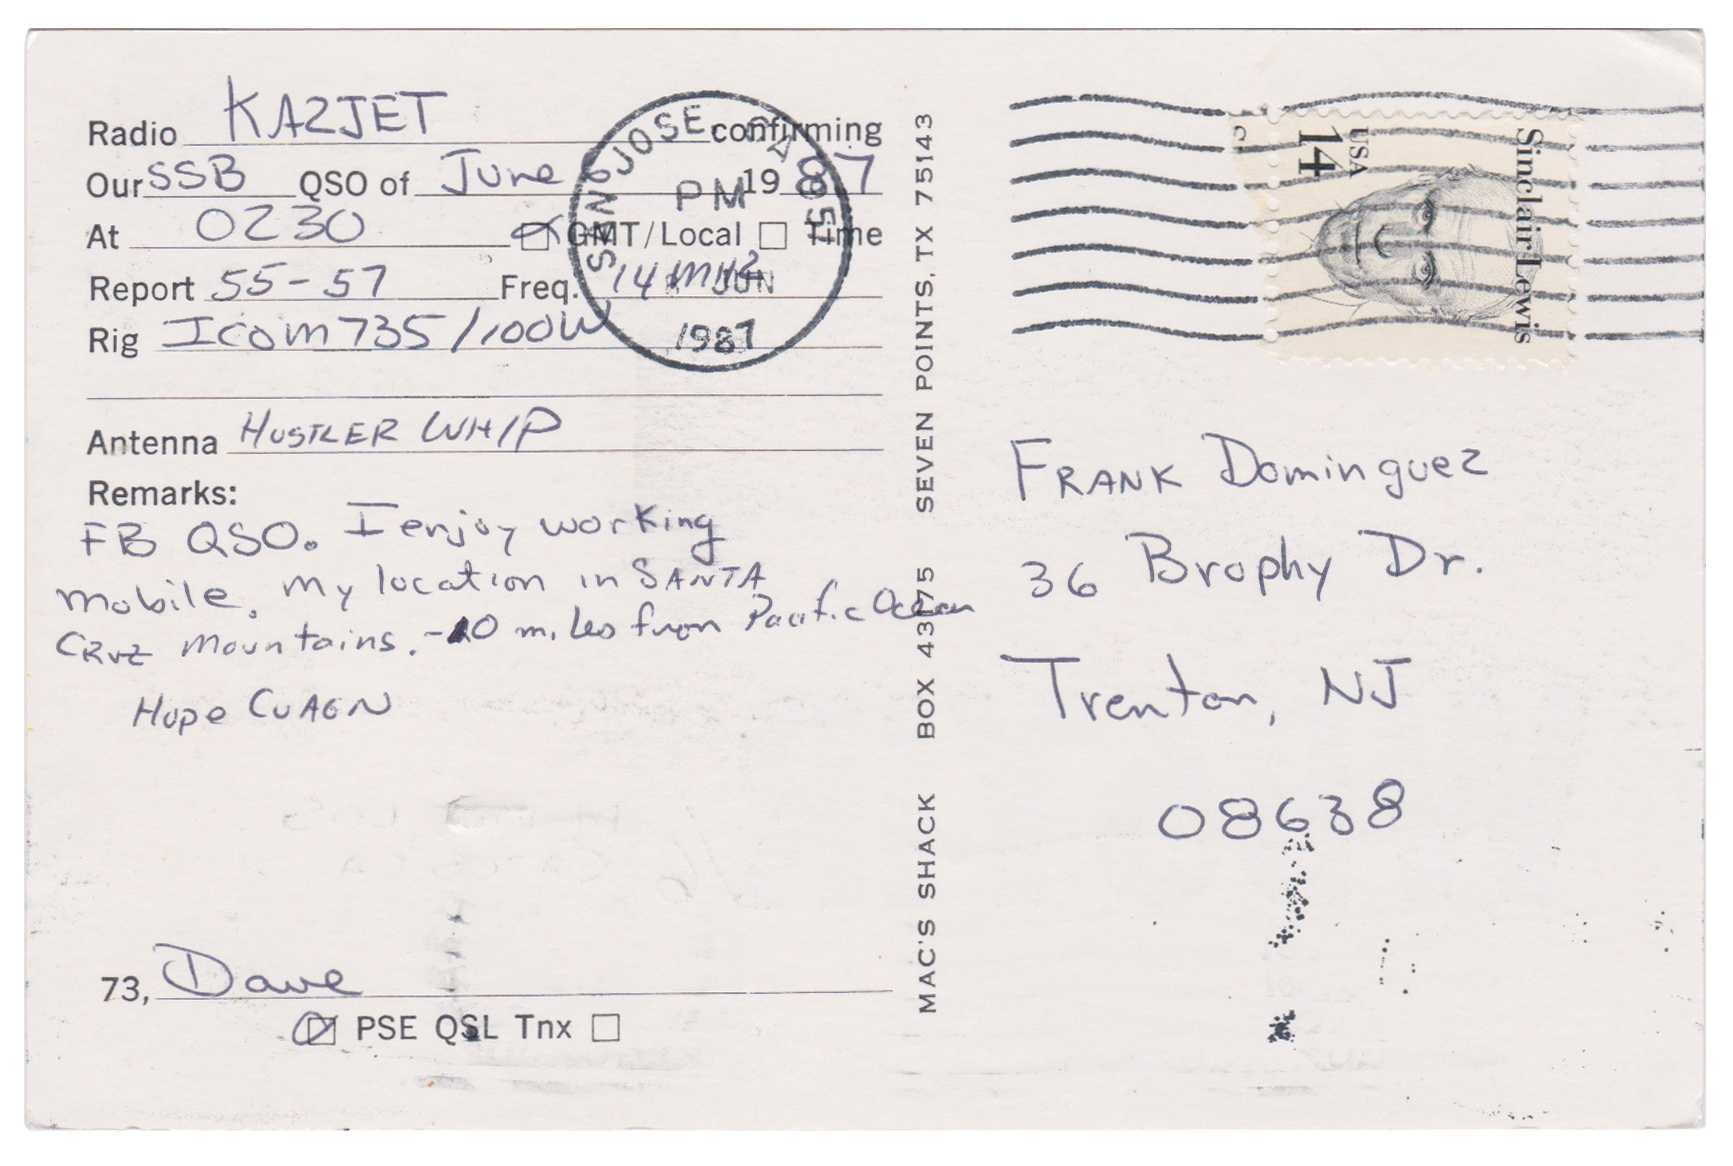 Radio KA2JET confirming
Our SSB QSO of June 6 1987
At 0230 GMT/Local Time
Report 55-57 Freq. 14 MHz
Rig Icom 735/100W
Antenna HUSTLER WHIP
Remarks:
FB QSO. I enjoy working
mobile. My location in SANTA
CRUZ Mountains. -10 miles from Pacific Ocean
Hope CUAGN
73, Dave
PSE QSL Tnx
MAC'S SHACK BOX 43175 SEVEN POINTS, TX 75143
SAN JOSE, CA 951
PM
JUN
1987
Sinclair Lewis
USA
14
c
FRANK Dominguez
36 Brophy Dr.
Trenton, NJ
08638